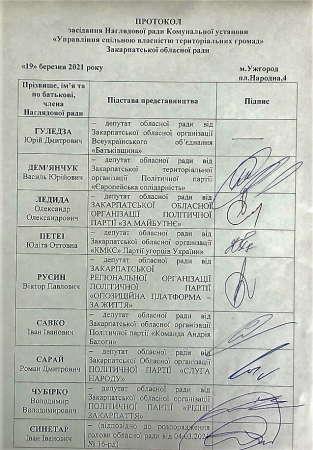 ПРОТОКОЛ
засідання Наглядової ради Комунальної установи
«Управління спільною власністю територіальних громад»
Закарпатської обласної ради
«19» березня 2021 року
м.Ужгород
пл.Народна,4
Прізвище, ім'я та
по батькові,
члена
Наглядової ради
Підстава представництва
Підпис
ГУЛЕДЗА
Юрій Дмитрович
– депутат обласної ради від
Закарпатської обласної організації
Всеукраїнського об'єднання
«Батьківщина»
ДЕМ'ЯНЧУК
Василь Юрійович
– депутат обласної ради від
Закарпатської територіальної
організації Політичної партії
«Європейська солідарність»
ЛЕДИДА
Олександр
Олександрович
– депутат обласної ради від
ЗАКАРПАТСЬКОЇ ОБЛАСНОЇ
ОРГАНІЗАЦІЇ ПОЛІТИЧНОЇ
ПАРТІЇ «ЗА МАЙБУТНЄ»
ПЕТЕІ
Юдіта Оттовна
– депутат обласної ради від
Закарпатської обласної організації
«КМКС» Партії угорців України»
РУСИН
Віктор Павлович
– депутат обласної ради від
ЗАКАРПАТСЬКОЇ
РЕГІОНАЛЬНОЇ ОРГАНІЗАЦІЇ
ПОЛІТИЧНОЇ ПАРТІЇ
«ОПОЗИЦІЙНА ПЛАТФОРМА –
ЗА ЖИТТЯ»
САВКО
Іван Іванович
– депутат обласної ради від
Закарпатської обласної організації
Політичної партії «Команда Андрія
Балоги»
САРАЙ
Роман Дмитрович
– депутат обласної ради від
Закарпатської Обласної організації
ПОЛІТИЧНОЇ ПАРТІЇ «СЛУГА
НАРОДУ»
ЧУБІРКО
Володимир
Володимирович
– депутат обласної ради від
Закарпатської обласної організації
ПОЛІТИЧНОЇ ПАРТІЇ «РІДНЕ
ЗАКАРПАТТЯ»
СИНЕТАР
Іван Іванович
– (відповідно до розпорядження
голови обласної ради від 04.03.2021
№ 16-рд)